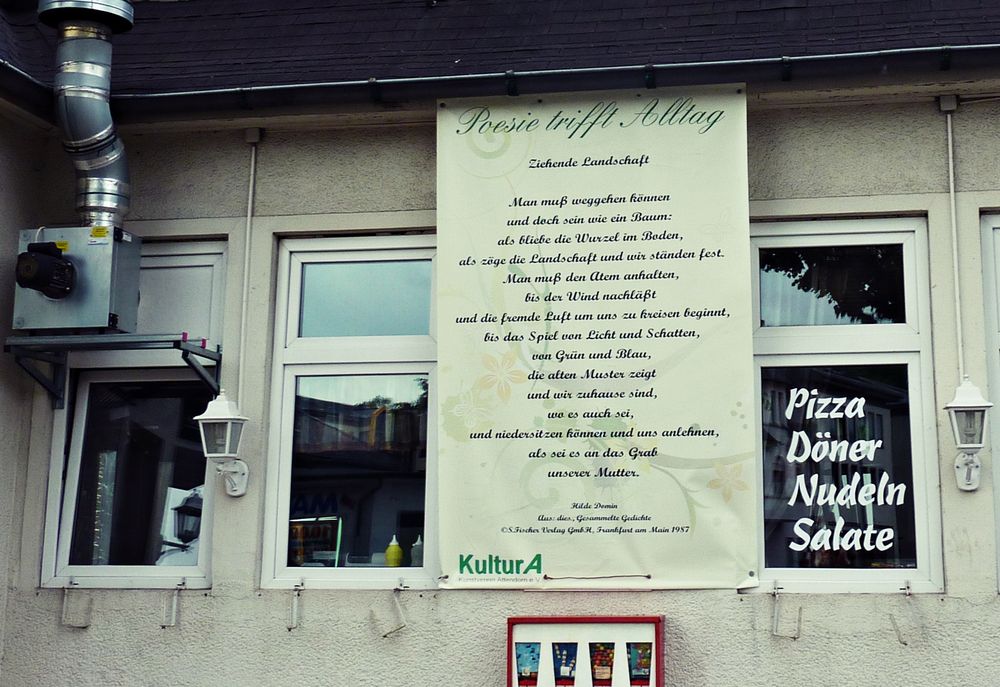 Poesie trifft Alltag
Ziehende Landschaft
Man muß weggehen können
und doch sein wie ein Baum:
als bliebe die Wurzel im Boden,
als zöge die Landschaft und wir ständen fest.
Man muß den Atem anhalten,
bis der Wind nachläßt
und die fremde Luft um uns zu kreisen beginnt,
bis das Spiel von Licht und Schatten,
von Grün und Blau,
die alten Muster zeigt
und wir zuhause sind,
wo es auch sei,
und niedersitzen können und uns anlehnen,
als sei es an das Grab
unserer Mutter.
Hilde Domin
Aus: dies., Gesammelte Gedichte
©S.Fischer Verlag GmbH, Frankfurt am Main 1987
KulturA
Kunstverein Attendorn e.V.
Pizza
Döner
Nudeln
Salate